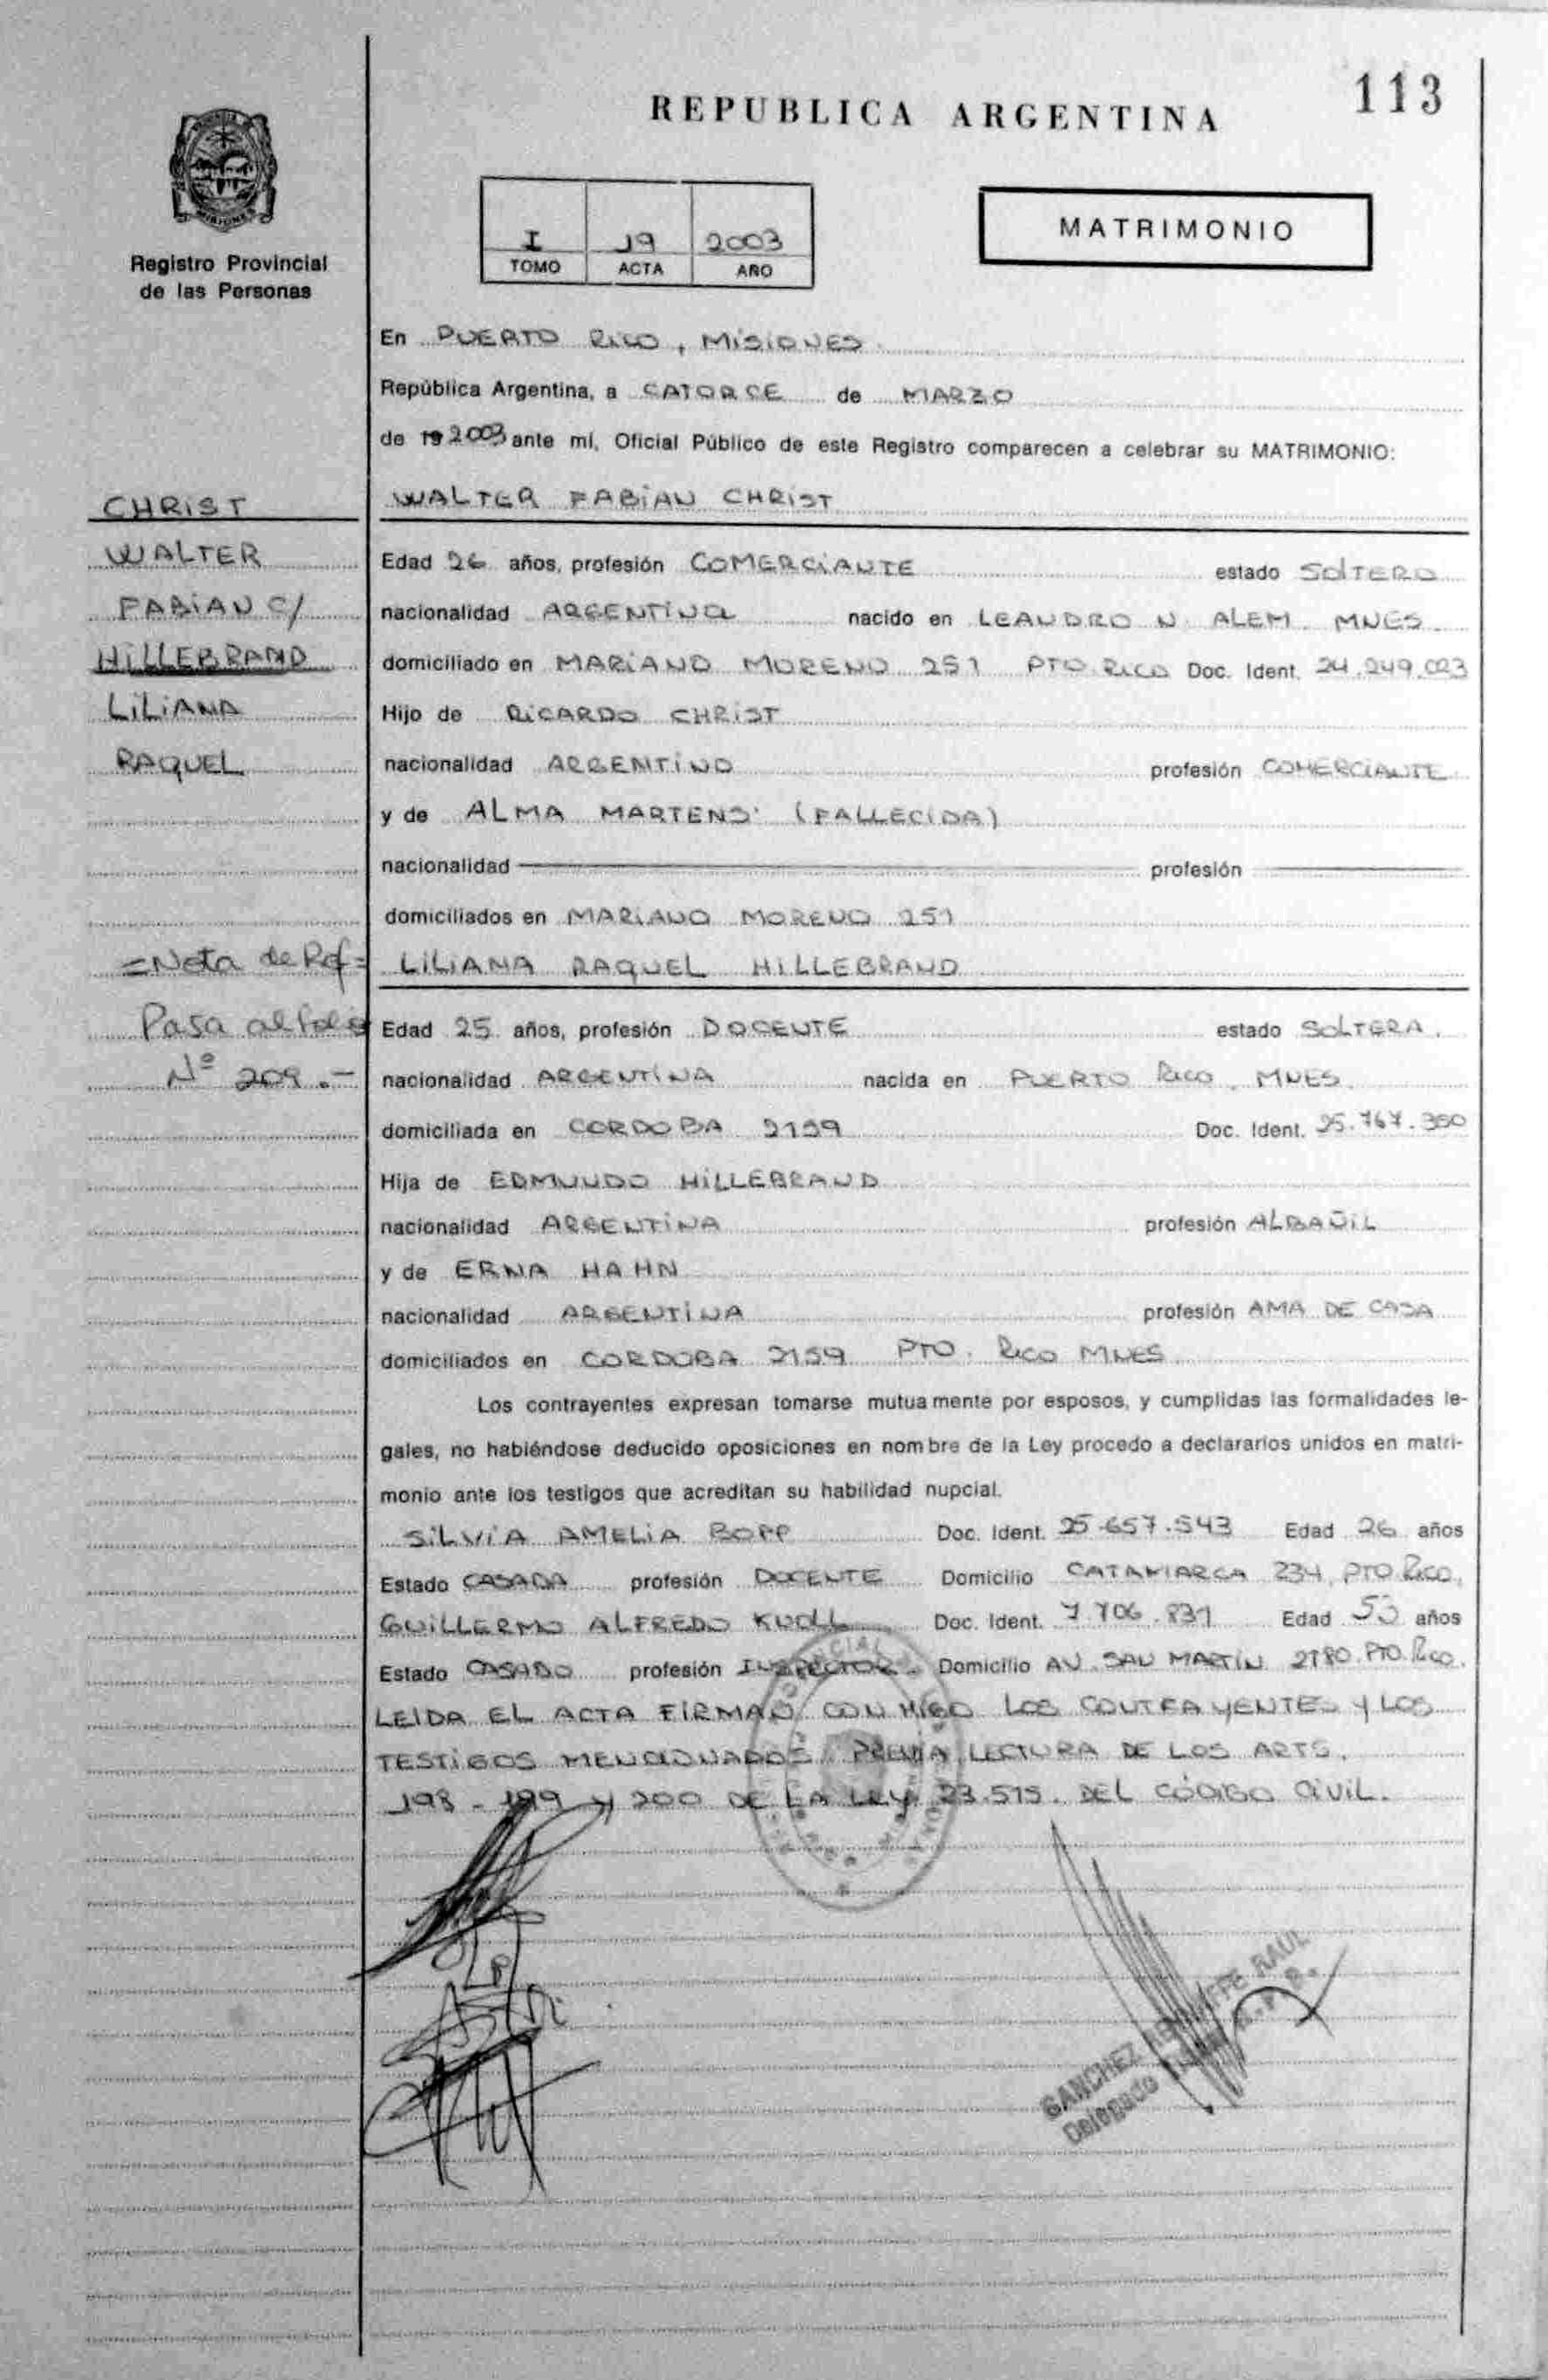 113
REPUBLICA ARGENTINA
MISIONES
Registro Provincial
de las Personas
I 19 2003
TOMO ACTA AÑO
MATRIMONIO
En PUERTO RICO, MISIONES
República Argentina, a CATORCE de MARZO
de 19 2003 ante mí, Oficial Público de este Registro comparecen a celebrar su MATRIMONIO:
CHRIST
WALTER
FABIAN C/
HILLEBRAND
LILIANA
RAQUEL
=Nota de Ref=
Pasa al folio
Nº 209.-
WALTER FABIAN CHRIST
Edad 26 años, profesión COMERCIANTE estado SOLTERO
nacionalidad ARGENTINA nacido en LEANDRO N. ALEM. MNES.
domiciliado en MARIANO MORENO 251 PTO. RICO Doc. Ident. 24.249.023
Hijo de RICARDO CHRIST
nacionalidad ARGENTINO profesión COMERCIANTE
y de ALMA MARTENS (FALLECIDA)
nacionalidad profesión
domiciliados en MARIANO MORENO 251
LILIANA RAQUEL HILLEBRAND
Edad 25 años, profesión DOCENTE estado SOLTERA.
nacionalidad ARGENTINA nacida en PUERTO RICO, MNES.
domiciliada en CORDOBA 2159 Doc. Ident. 25.767.350
Hija de EDMUNDO HILLEBRAND
nacionalidad ARGENTINA profesión ALBAÑIL
y de ERNA HAHN
nacionalidad ARGENTINA profesión AMA DE CASA
domiciliados en CORDOBA 2159 PTO. RICO MNES
Los contrayentes expresan tomarse mutuamente por esposos, y cumplidas las formalidades le-
gales, no habiéndose deducido oposiciones en nombre de la Ley procedo a declararlos unidos en matri-
monio ante los testigos que acreditan su habilidad nupcial.
SILVIA AMELIA BOPP Doc. Ident. 25.657.543 Edad 26 años
Estado CASADA profesión DOCENTE Domicilio CATAMARCA 234, PTO RICO,
GUILLERMO ALFREDO KNOLL Doc. Ident. 7.706.831 Edad 53 años
Estado CASADO profesión INSPECTOR. Domicilio AV. SAN MARTIN 2180. PTO. RICO.
LEIDA EL ACTA FIRMAN CON MIGO LOS CONTRAYENTES Y LOS
TESTIGOS MENCIONADOS PREVIA LECTURA DE LOS ARTS.
198 - 199 Y 200 DE LA LEY 23.515. DEL CÓDIGO CIVIL.
SANCHEZ RAUL
Delegado